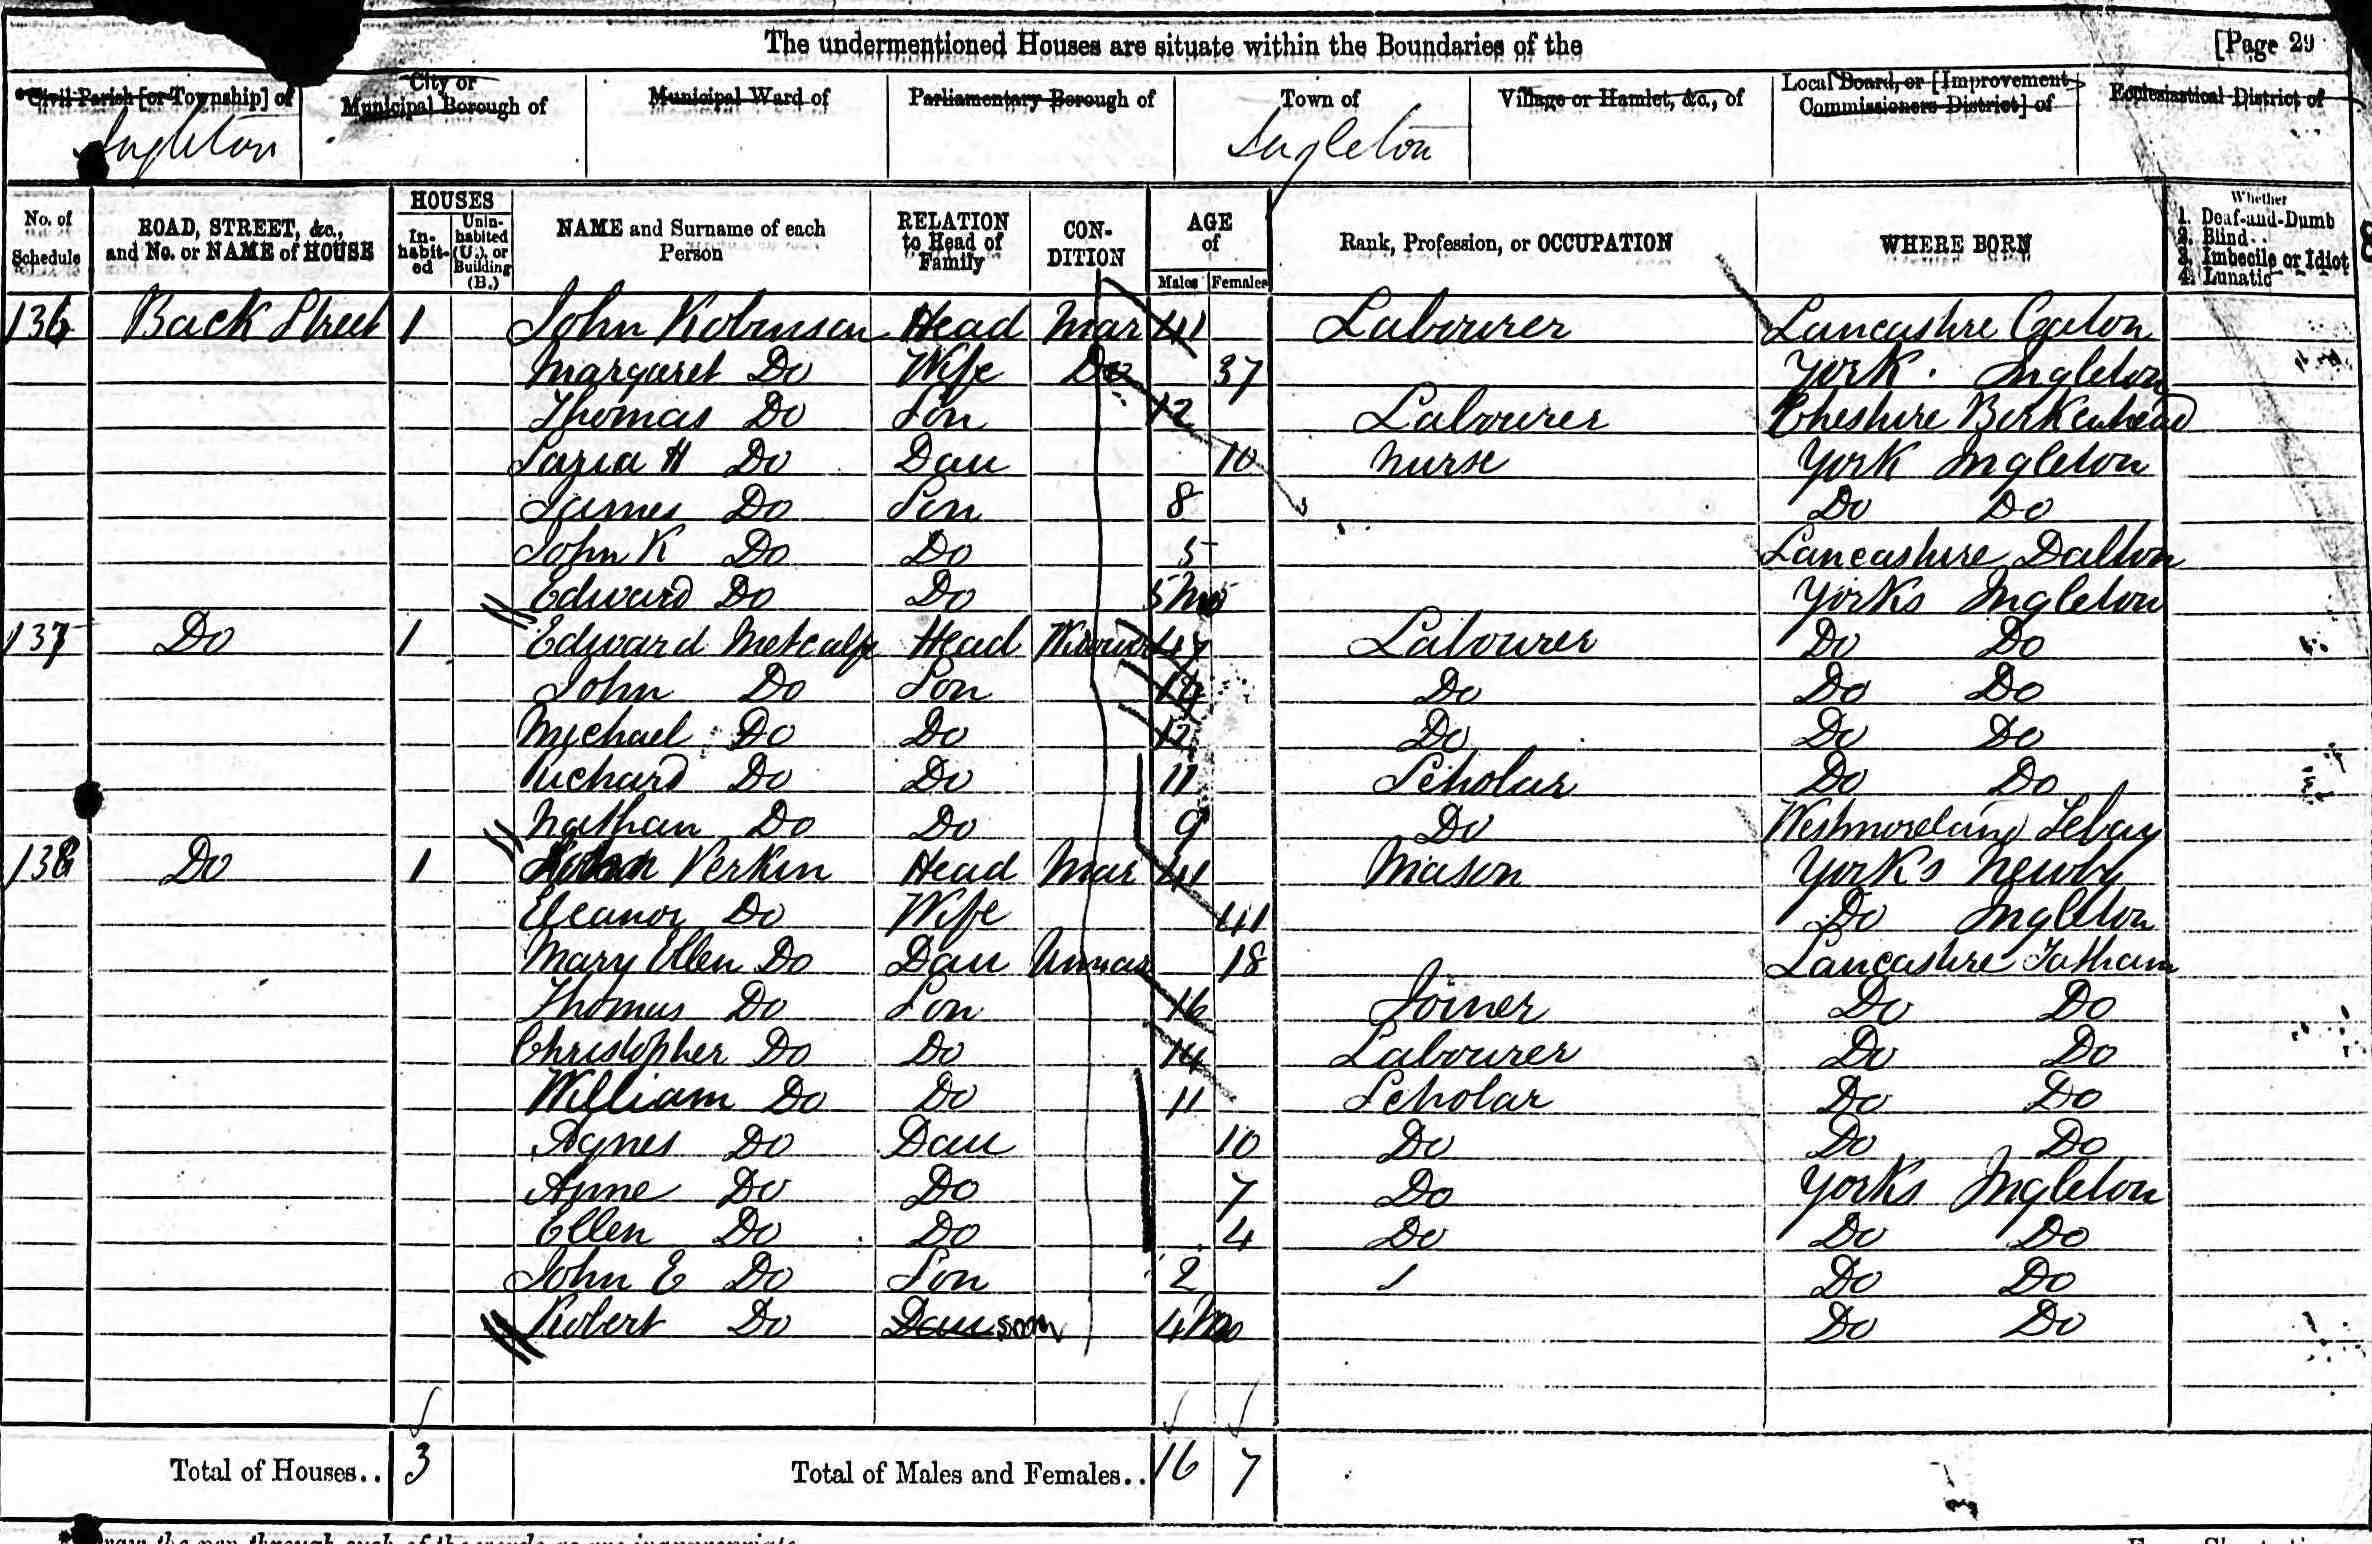 The undermentioned Houses are situate within the Boundaries of the [Page 29
Civil Parish [or Township] of City or Municipal Borough of Municipal Ward of Parliamentary Borough of Town of Village or Hamlet, &c., of Local Board, or [Improvement Commissioners District] of Ecclesiastical District of
Ingleton Ingleton
No. of Schedule ROAD, STREET, &c., and No. or NAME of HOUSE HOUSES In-habit-ed Unin-habited (U.), or Building (B.) NAME and Surname of each Person RELATION to Head of Family CON-DITION AGE of Males Females Rank, Profession, or OCCUPATION WHERE BORN Whether 1. Deaf-and-Dumb 2. Blind 3. Imbecile or Idiot 4. Lunatic
136 Back Street 1 John Robinson Head Mar 41 Labourer Lancashire Caton
Margaret Do Wife Do 37 York. Ingleton
Thomas Do Son 12 Labourer Cheshire Birkenhead
H Do Dau 10 Nurse York Ingleton
James Do Son 8 Do Do
John K Do Do 5 Lancashire Dalton
Edward Do Do 5 Mo Yorks Ingleton
137 Do 1 Edward Metcalfe Head Widower 47 Labourer Do Do
John Do Son 14 Do Do Do
Michael Do Do 12 Do Do Do
Richard Do Do 11 Scholar Do Do
Nathan Do Do 9 Do Westmoreland Tebay
138 Do 1 Perkin Head Mar 41 Mason Yorks Newby
Eleanor Do Wife 41 Do Ingleton
Mary Ellen Do Dau Unmar 18 Lancashire Tatham
Thomas Do Son 16 Joiner Do Do
Christopher Do Do 14 Labourer Do Do
William Do Do 11 Scholar Do Do
Agnes Do Dau 10 Do Do Do
Anne Do Do 7 Do Yorks Ingleton
Ellen Do Do 4 Do Do Do
John E Do Son 2 Do Do
Robert Do Dau son 4 Mo Do Do
Total of Houses.. 3 Total of Males and Females.. 16 7